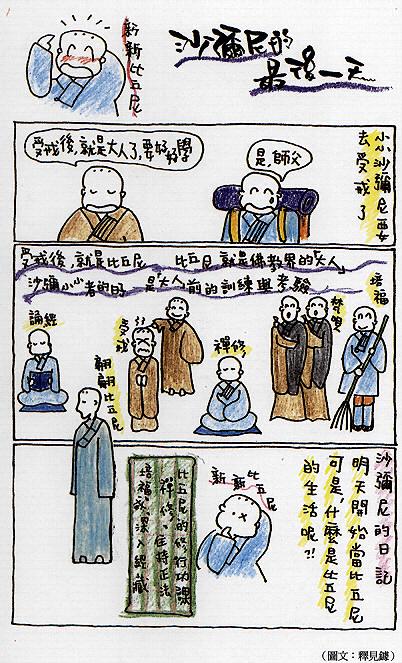 沙彌尼的
最後一天
新新比丘尼
小小沙彌尼要
去受戒了
是,師父
受戒後,就是大人了,要好好學
受戒後,就是比丘尼 比丘尼就是佛教界的「大人」
沙彌小小者的的 是「大人」前的訓練與考驗
培福
梵唄
禪修
受戒
誦經
翩翩比丘尼
沙彌尼的日記
明天開始當比丘尼
可是,什麼是比丘尼
的生活呢?!
新新比丘尼
比丘尼的修行功課
禪修、住持正法
培福或深入經藏
(圖文:釋見